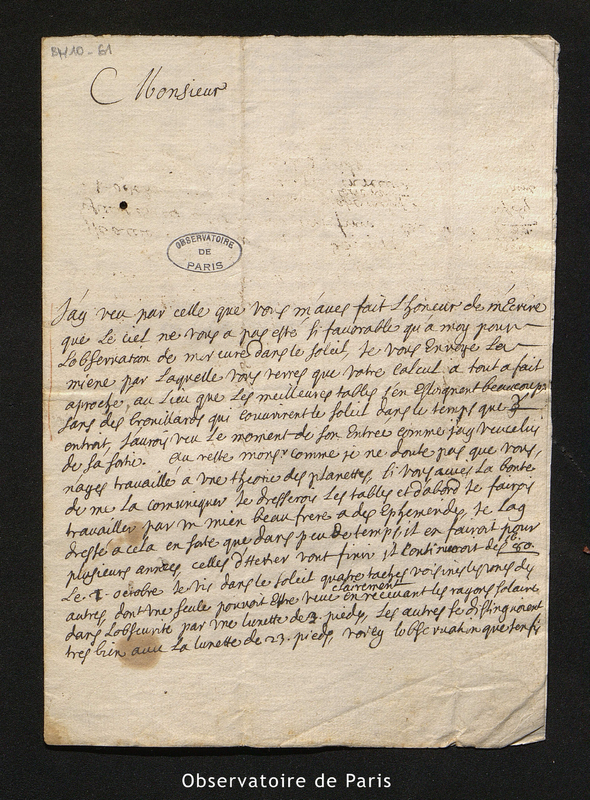 BH10-61
Monsieur
OBSERVATOIRE
DE
PARIS
Jay veu par celle que vous maves fait lhoneur de mEcrire
que Le ciel ne vous a pas esté si favorable qu'a moy pour
Lobservation de mercure dans le soleil, je vous Envoye La
miene par Laquelle vous verres que votre calcul a tout a fait
aproché, au lieu que Les meilleures tables sen Esloignent beaucoup
sans des brouillards qui couvrirent le soleil dans le temps que ☿
entroit, Jaurois veu Le moment de son Entrée comme jay veu celuy
de sa sortie. Au reste mons.r comme je ne doute pas que vous
nayes travaillé a une theorie des planettes, si vous avies La bonté
de me La comuniquer je dresserois Les tables et d'abord je fairois
travailler par un mien beau frere a des Ephemerides, je Lay
dressé a cela en sorte que dans peu de temps, il en fairoit pour
plusieurs années, celles d'Hecker vont finir il continueroit des 80.
Le 1. octobre Je vis dans le soleil quatre taches voisines les unes des
autres, dont une seule pouvoit Estre veue clairement en recevant les rayons solaires
dans Lobscurité par une lunette de 3. pieds, Les autres se distinguoient
tres bien avec La lunette de 23. pieds, voicy lobservation que jen fis
Observatoire de Paris